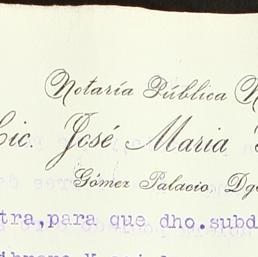 Notaría Pública N
Lic. José Maria
Gómez Palacio, Dg
tra,para que dho.subd